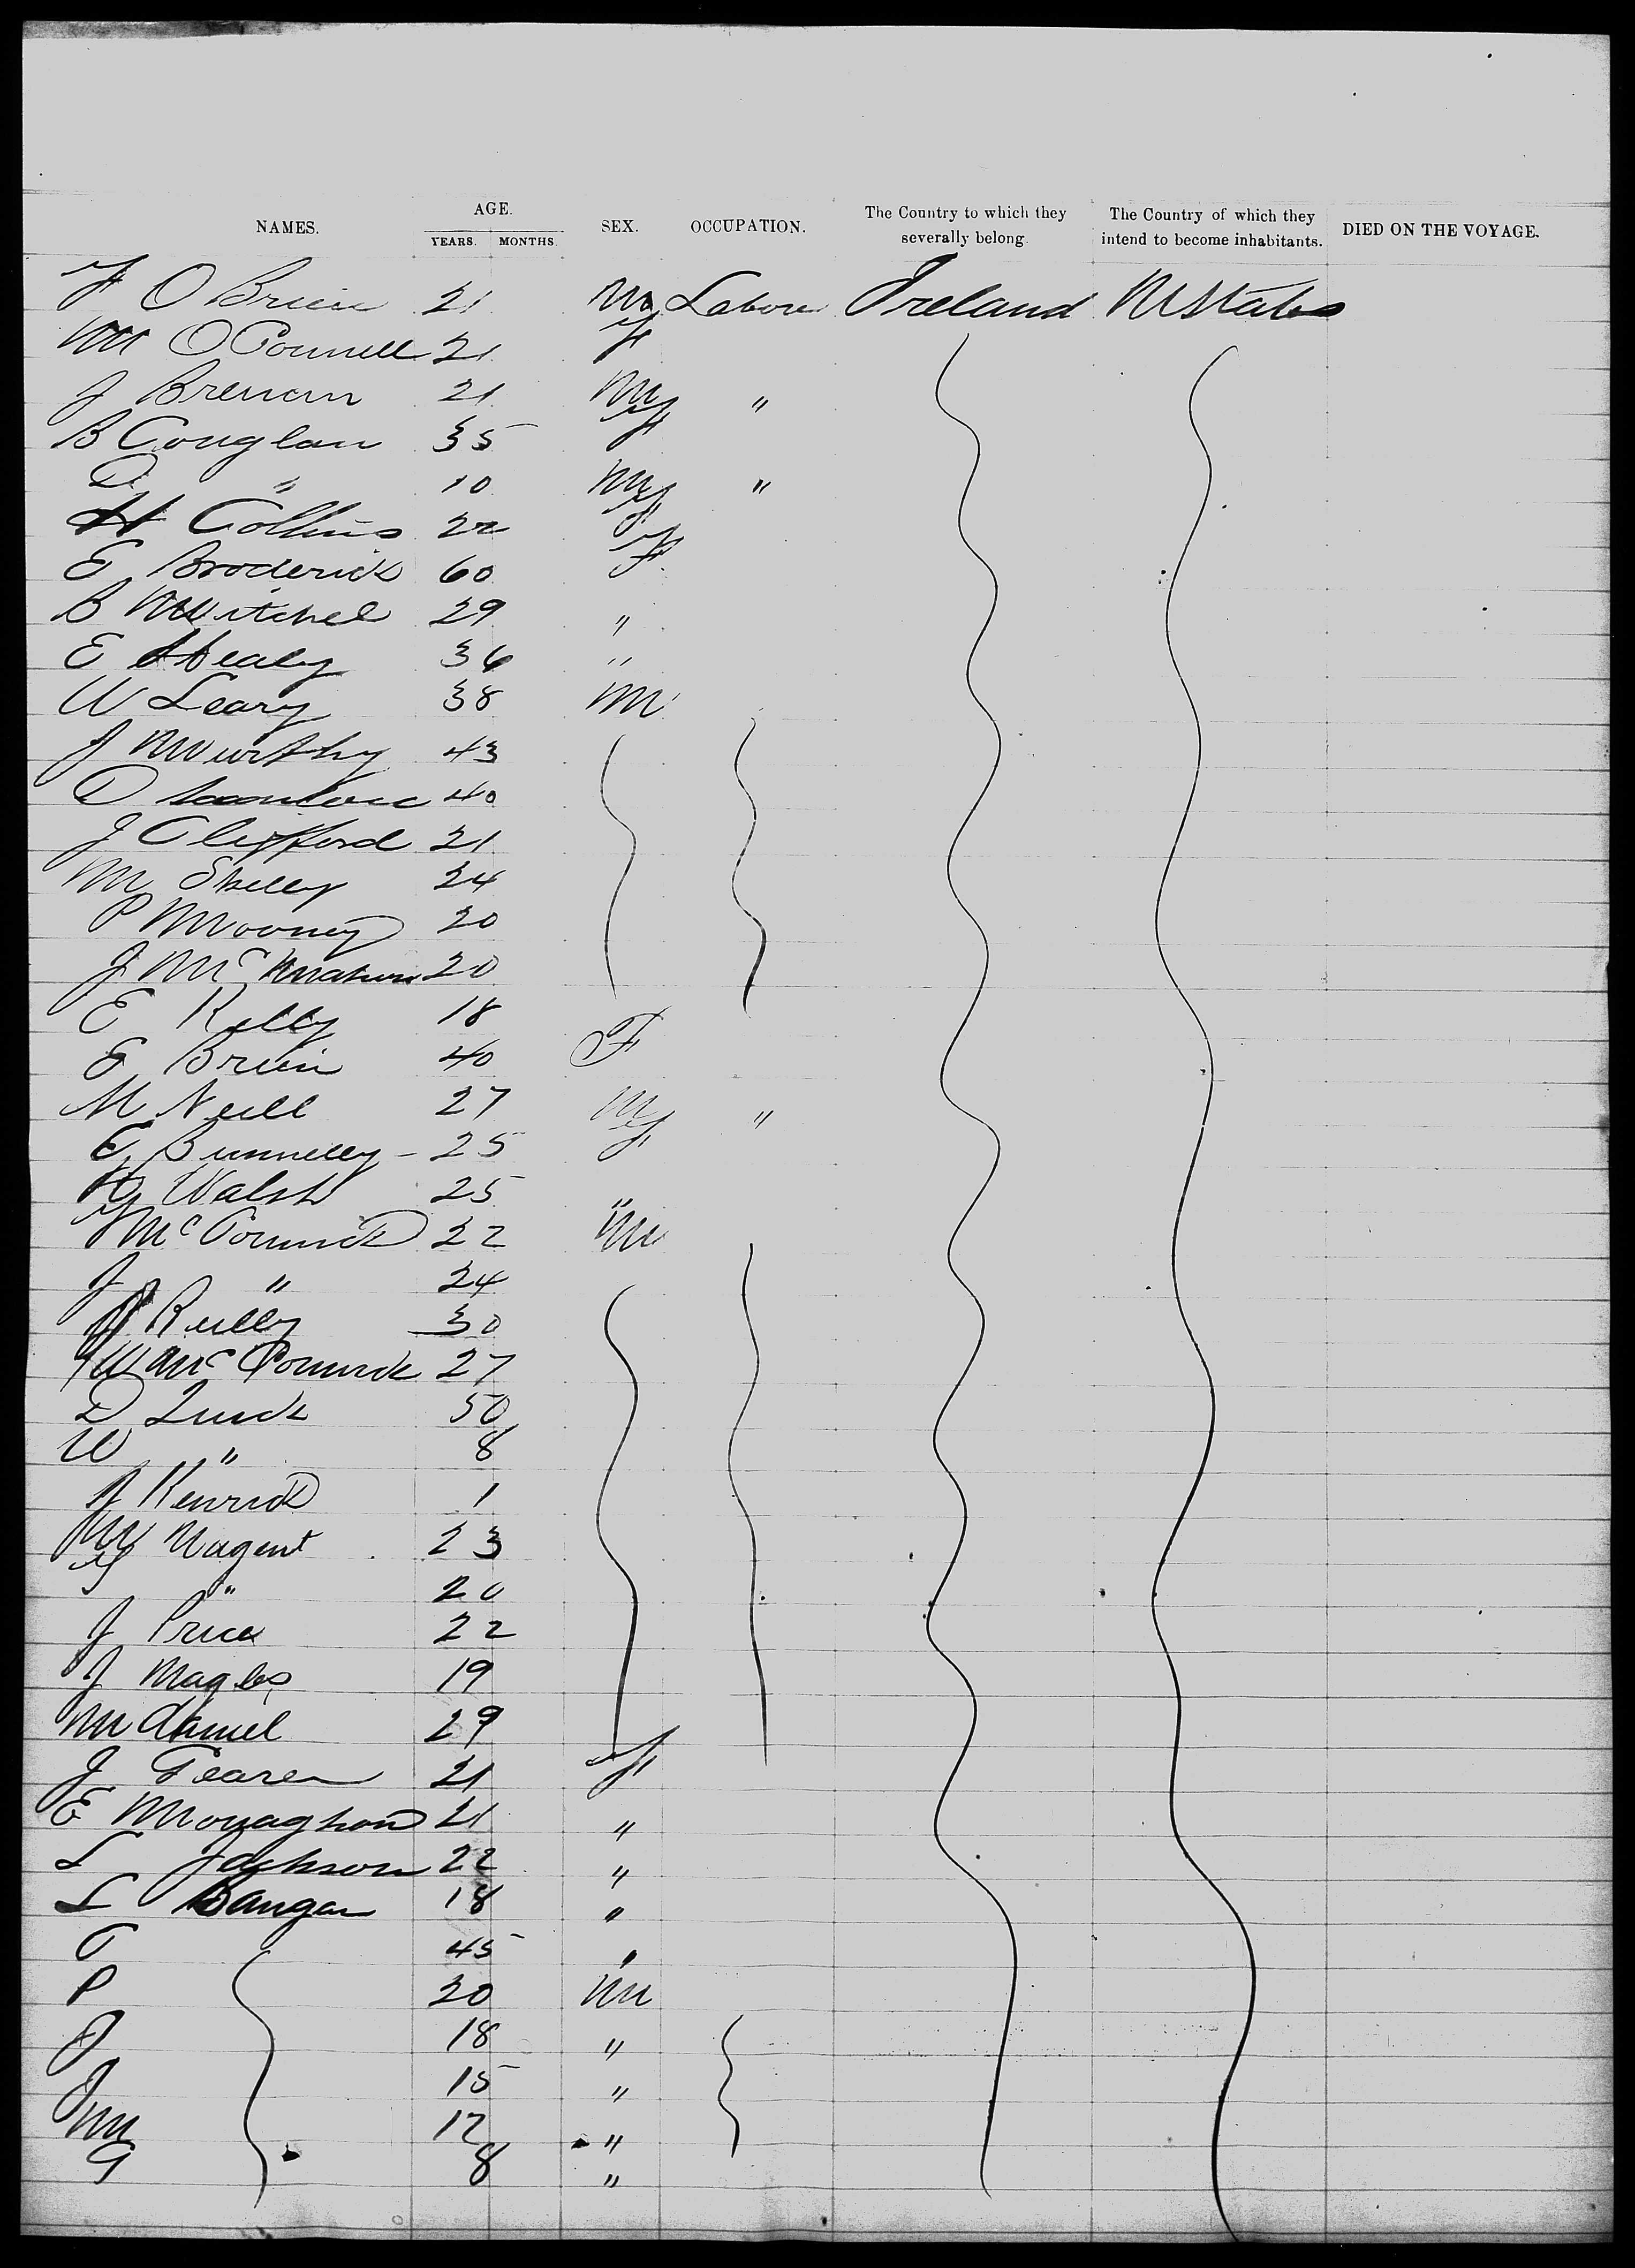 NAMES. AGE. SEX. OCCUPATION. The Country to which they severally belong. The Country of which they intend to become inhabitants. DIED ON THE VOYAGE.
YEARS. MONTHS.
F O Brien 21 M Labore Ireland U States
M O Connell 21 F
J Brenan 21 M "
B Couglan 35 F
D " 10 M "
H Collins 22 F
E Broderick 60 F
B Mitchel 29 "
E Healy 36 "
W Leary 38 M
J Murthy 43
D 40
J Clifford 21
M Shelly 24
P Mooney 20
J Mc Mahon 20
E Kelly 18
E Brien 40 F
M Neill 27 M "
E Bunnelly 25 F
Walsh 25 "
Mc Cormick 22 M
J " 24
Reilly 30
W Mc Cormick 27
D Quick 50
W " 8
Kenrick 1
M Nugent 23
" 20
J Price 22
J 19
M Daniel 29
J 21 F
E Monaghan 21 "
L Jackson 22 "
L Bangan 18 "
C 45 "
P 20 M
J 18 "
J 15 "
M 12 "
G 8 "